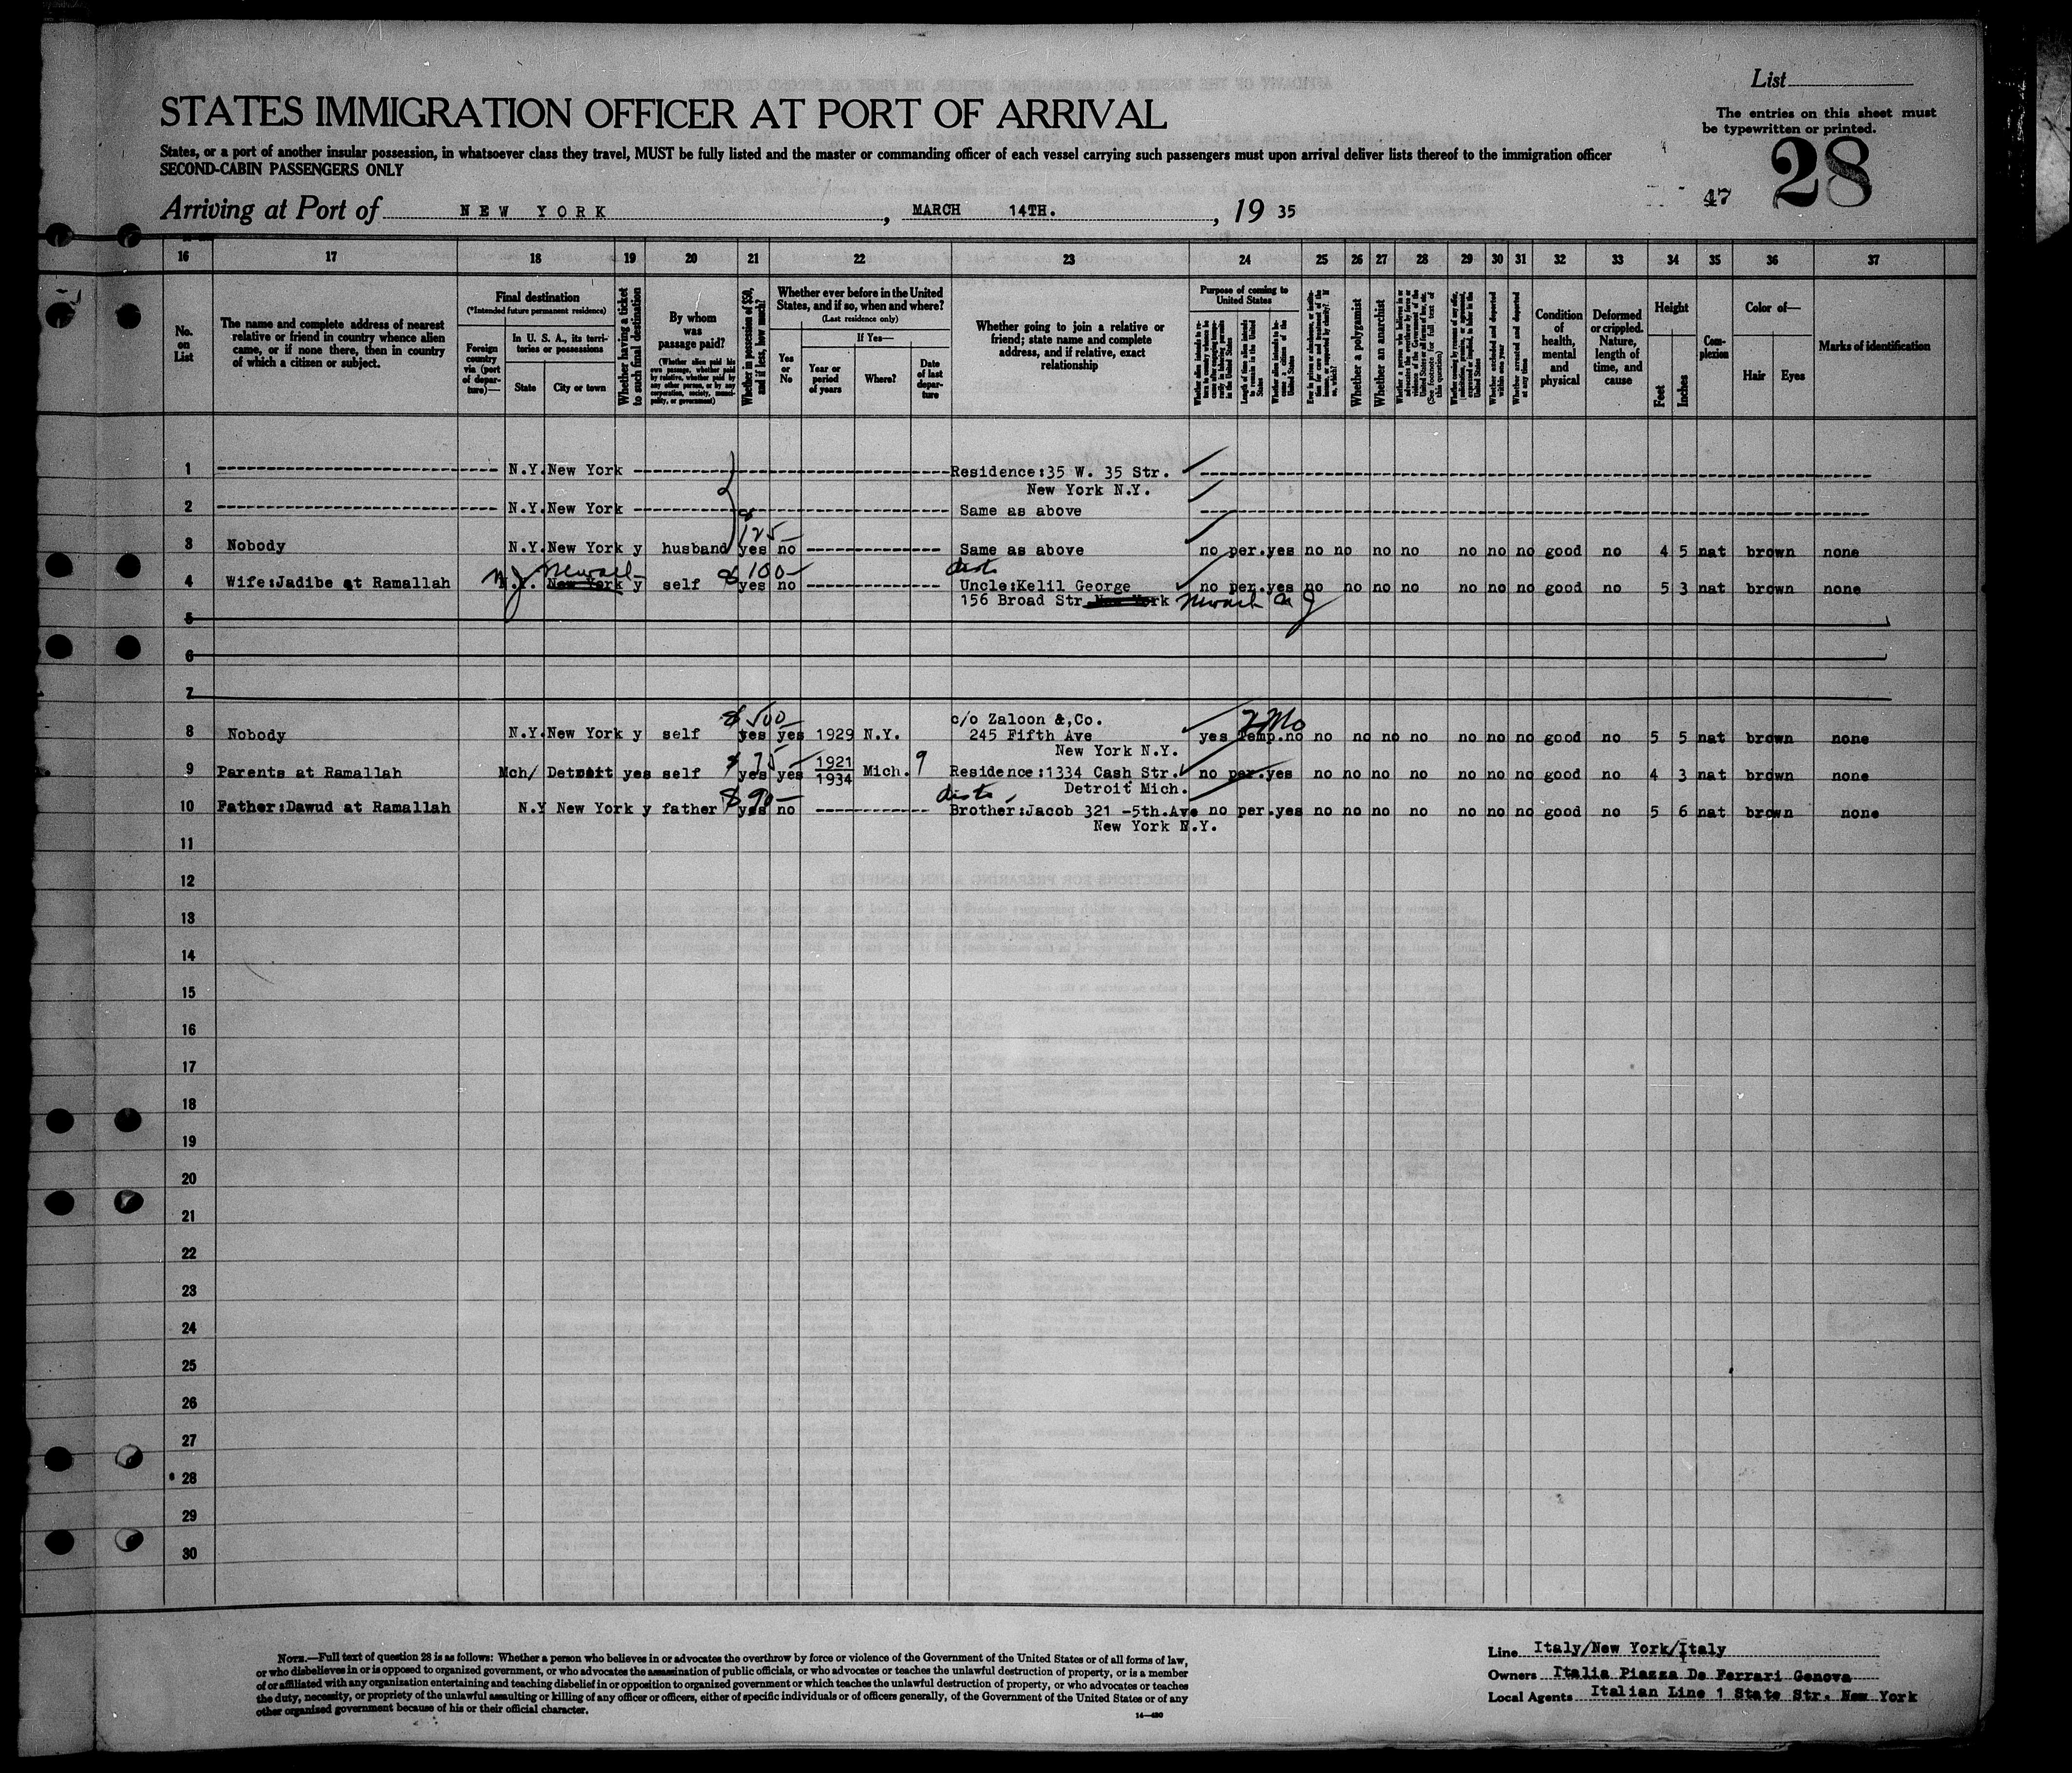 List
STATES IMMIGRATION OFFICER AT PORT OF ARRIVAL
The entries on this sheet must
be typewritten or printed.
States, or a port of another insular possession, in whatsoever class they travel, MUST be fully listed and the master or commanding officer of each vessel carrying such passengers must upon arrival deliver lists thereof to the immigration officer
SECOND-CABIN PASSENGERS ONLY
47 28
Arriving at Port of NEW YORK, MARCH 14TH., 19 35
16 17 18 19 20 21 22 23 24 25 26 27 28 29 30 31 32 33 34 35 36 37
No. on List
The name and complete address of nearest
relative or friend in country whence alien
came, or if none there, then in country
of which a citizen or subject.
Final destination
(*Intended future permanent residence)
Foreign country via (port of departure)—
In U. S. A., its territories or possessions
State
City or town
Whether having a ticket to such final destination
By whom was passage paid?
(Whether alien paid his own passage, whether paid by relative, whether paid by any other person, or by any corporation, society, municipality, or government)
Whether in possession of $50, and if less, how much?
Whether ever before in the United
States, and if so, when and where?
(Last residence only)
Yes or No
If Yes—
Year or period of years
Where?
Date of last departure
Whether going to join a relative or
friend; state name and complete
address, and if relative, exact
relationship
Purpose of coming to United States
Length of time alien intends to remain in the United States
Whether a polygamist
Whether an anarchist
Whether arrested and deported at any time
Condition of health, mental and physical
Deformed or crippled. Nature, length of time, and cause
Height
Feet
Inches
Complexion
Color of—
Hair
Eyes
Marks of identification
1 N.Y. New York Residence:35 W. 35 Str.
New York N.Y.
2 N.Y. New York Same as above
$125
3 Nobody N.Y. New York y husband yes no Same as above no per. yes no no no no no no no good no 4 5 nat brown none
Newark $100
4 Wife:Jadibe at Ramallah N.J. New York y self yes no Uncle:Kelil George no per. yes no no no no no no no good no 5 3 nat brown none
156 Broad Str New York Newark N J
5
6
7
$500 c/o Zaloon &,Co. 2 Mo
8 Nobody N.Y. New York y self yes yes 1929 N.Y. 245 Fifth Ave yes Temp. no no no no no no no no good no 5 5 nat brown none
New York N.Y.
$75
9 Parents at Ramallah Mch/ Detroit yes self yes yes 1921 1934 Mich. 9 Residence:1334 Cash Str. no per. yes no no no no no no no good no 4 3 nat brown none
Detroit Mich.
$90
10 Father:Dawud at Ramallah N.Y New York y father yes no Brother:Jacob 321 -5th.Ave no per. yes no no no no no no no good no 5 6 nat brown none
New York N.Y.
11
12
13
14
15
16
17
18
19
20
21
22
23
24
25
26
27
28
29
30
NOTE.—Full text of question 28 is as follows: Whether a person who believes in or advocates the overthrow by force or violence of the Government of the United States or of all forms of law,
or who disbelieves in or is opposed to organized government, or who advocates the assassination of public officials, or who advocates or teaches the unlawful destruction of property, or is a member
of or affiliated with any organization entertaining and teaching disbelief in or opposition to organized government or which teaches the unlawful destruction of property, or who advocates or teaches
the duty, necessity, or propriety of the unlawful assaulting or killing of any officer or officers, either of specific individuals or of officers generally, of the Government of the United States or of any
other organized government because of his or their official character.
14—430
Line Italy/New York/Italy
Owners Italia Piazza De Ferrari Genova
Local Agents Italian Line 1 State Str. New York